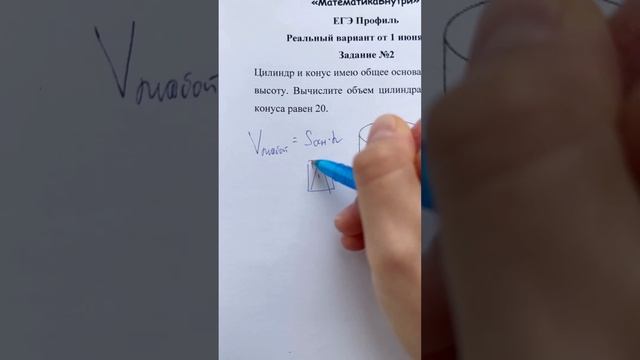 «МатематикаВнутри»
ЕГЭ Профиль
Реальный вариант от 1 июня
Задание №2
Цилиндр и конус имею общее основа
высоту. Вычислите объем цилиндра
конуса равен 20.
V любой = Sосн·h
V любой